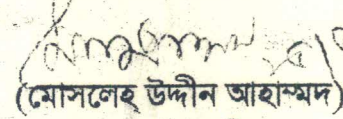 (মোসলেহ্ উদ্দীন আহাম্মদ)